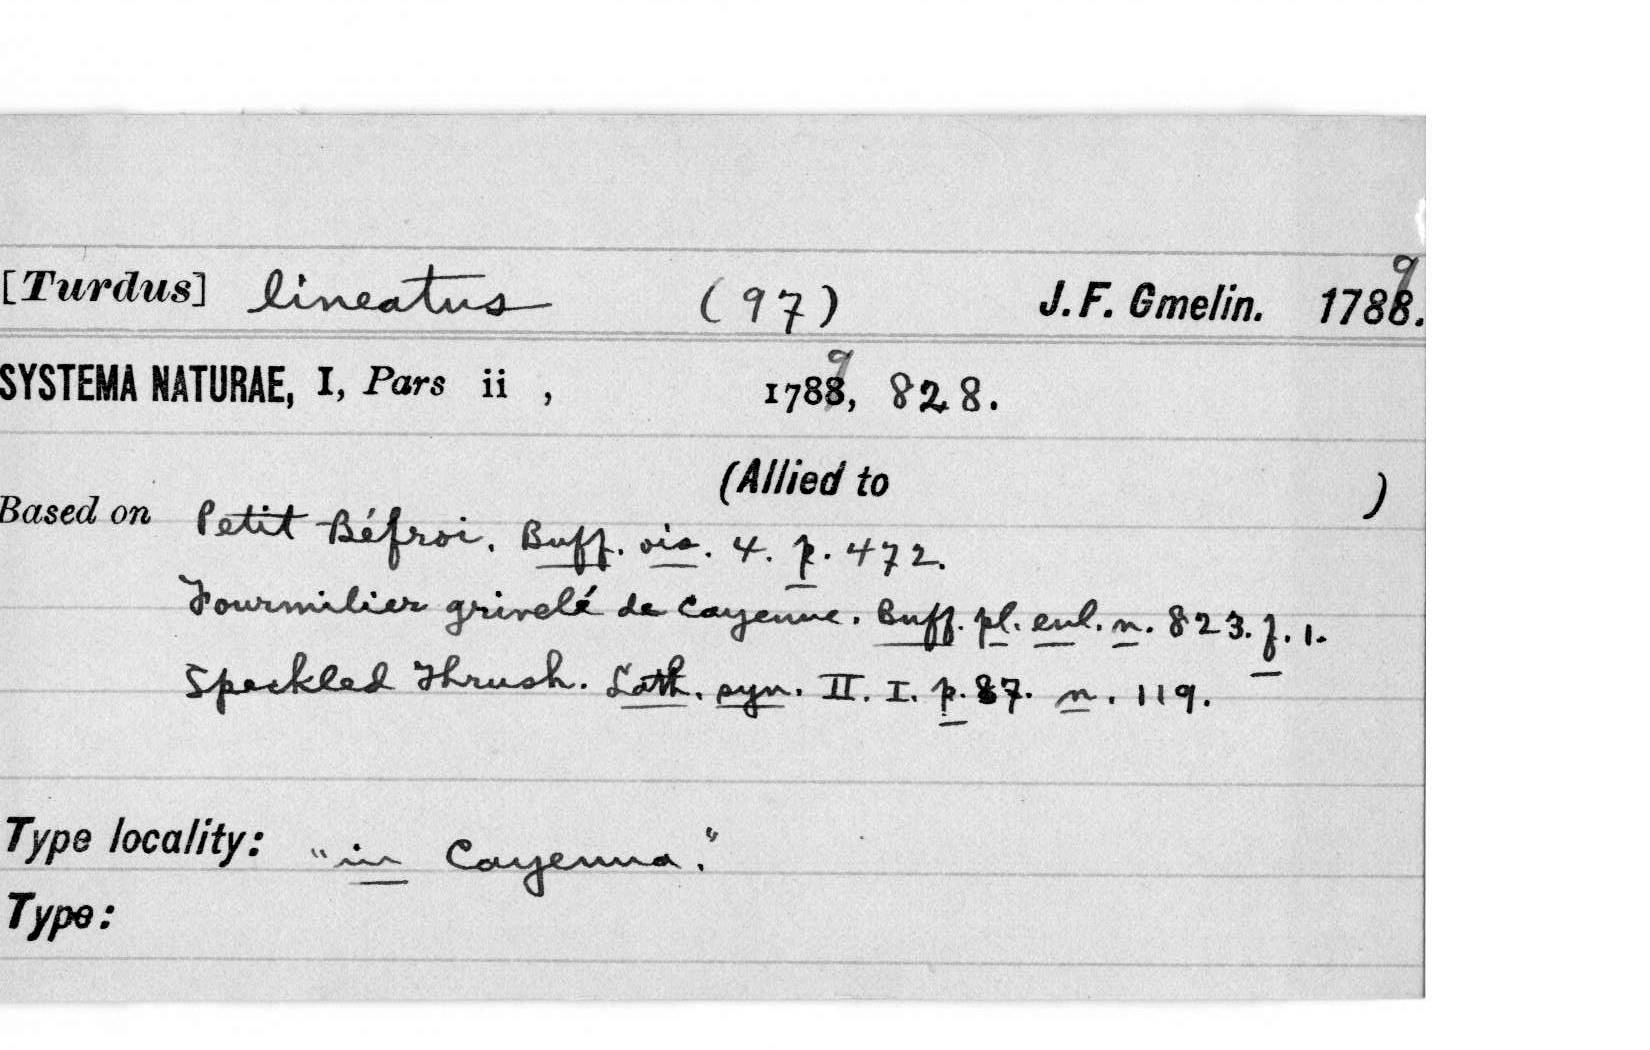 [Turdus] lineatus (97) J. F. Gmelin. 1789.
SYSTEMA NATURAE, I, Pars ii , 1789, 828.
(Allied to )
Based on Petit Béfroi. Buff. ois. 4. p. 472.
Fourmilier grivelé de Cayenne. Buff. pl. enl. n. 823. f. 1.
Speckled Thrush. Lath. syn. II. I. p. 87. n. 119.
Type locality: "in Cayenna."
Type: